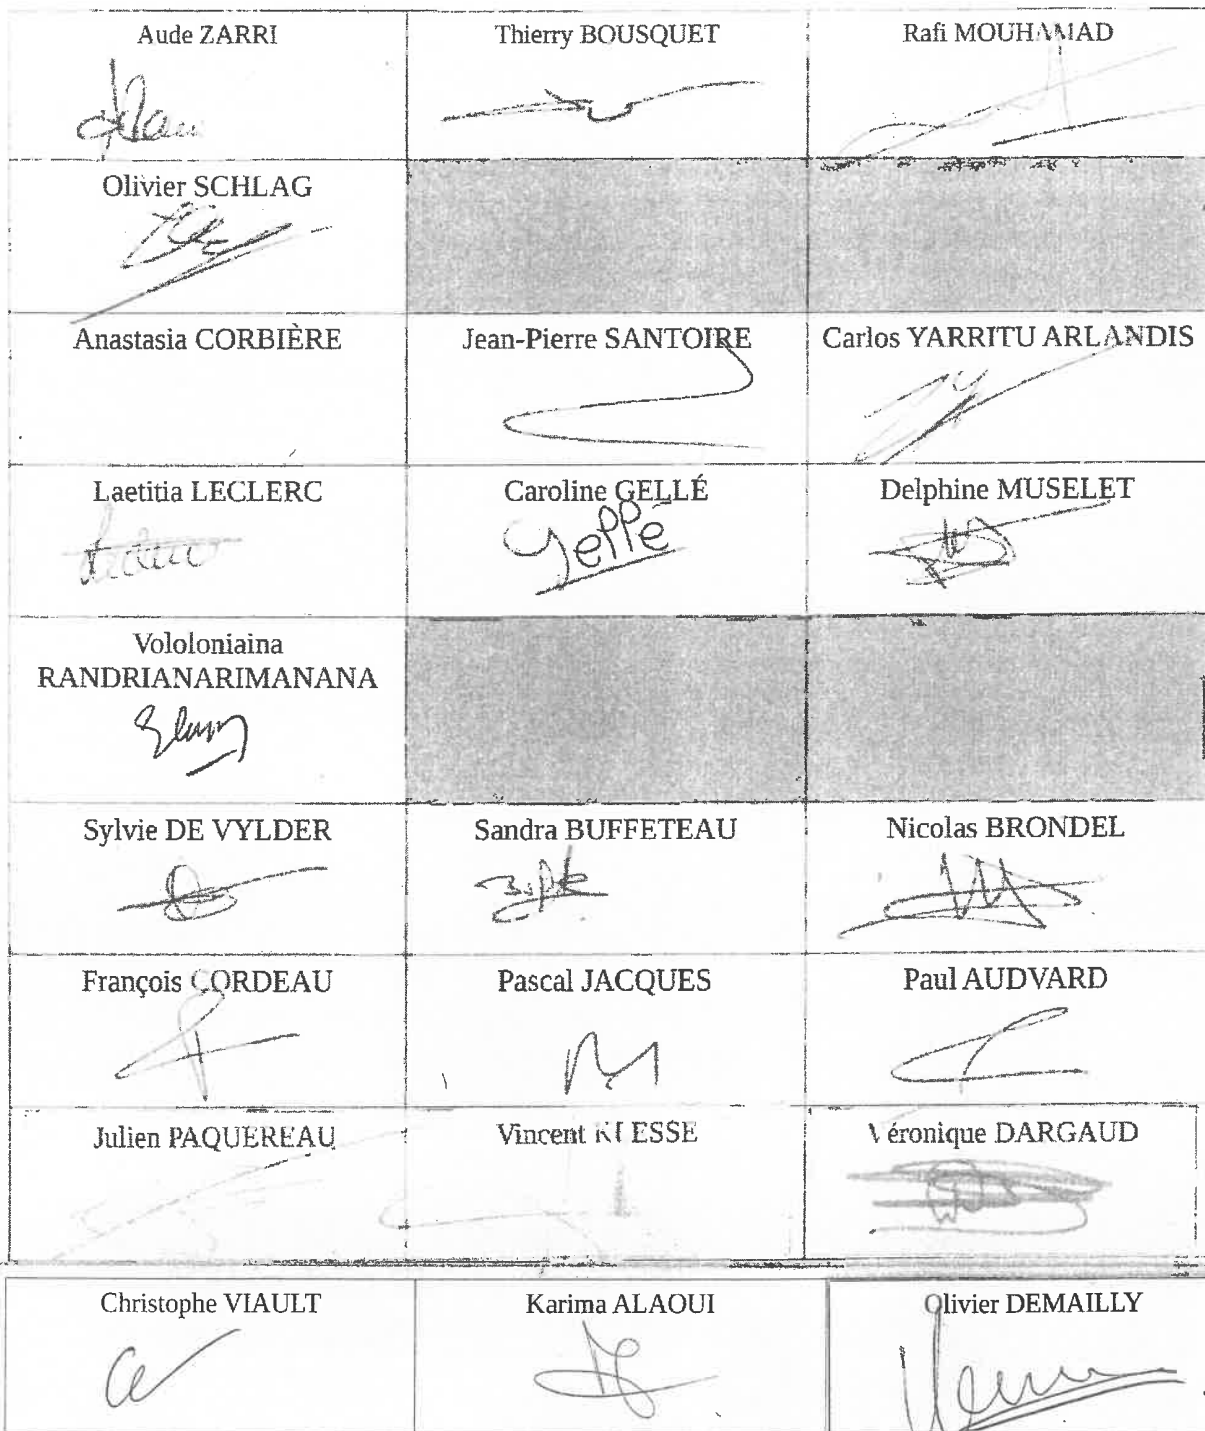 Aude ZARRI
Thierry BOUSQUET
Rafi MOUHAMAD
Olivier SCHLAG
Anastasia CORBIÈRE
Jean-Pierre SANTOIRE
Carlos YARRITU ARLANDIS
Laetitia LECLERC
Caroline GELLÉ
Delphine MUSELET
Gellé
Vololoniaina
RANDRIANARIMANANA
Sylvie DE VYLDER
Sandra BUFFETEAU
Nicolas BRONDEL
François CORDEAU
Pascal JACQUES
Paul AUDVARD
Julien PAQUEREAU
Vincent
Véronique DARGAUD
Christophe VIAULT
Karima ALAOUI
Olivier DEMAILLY